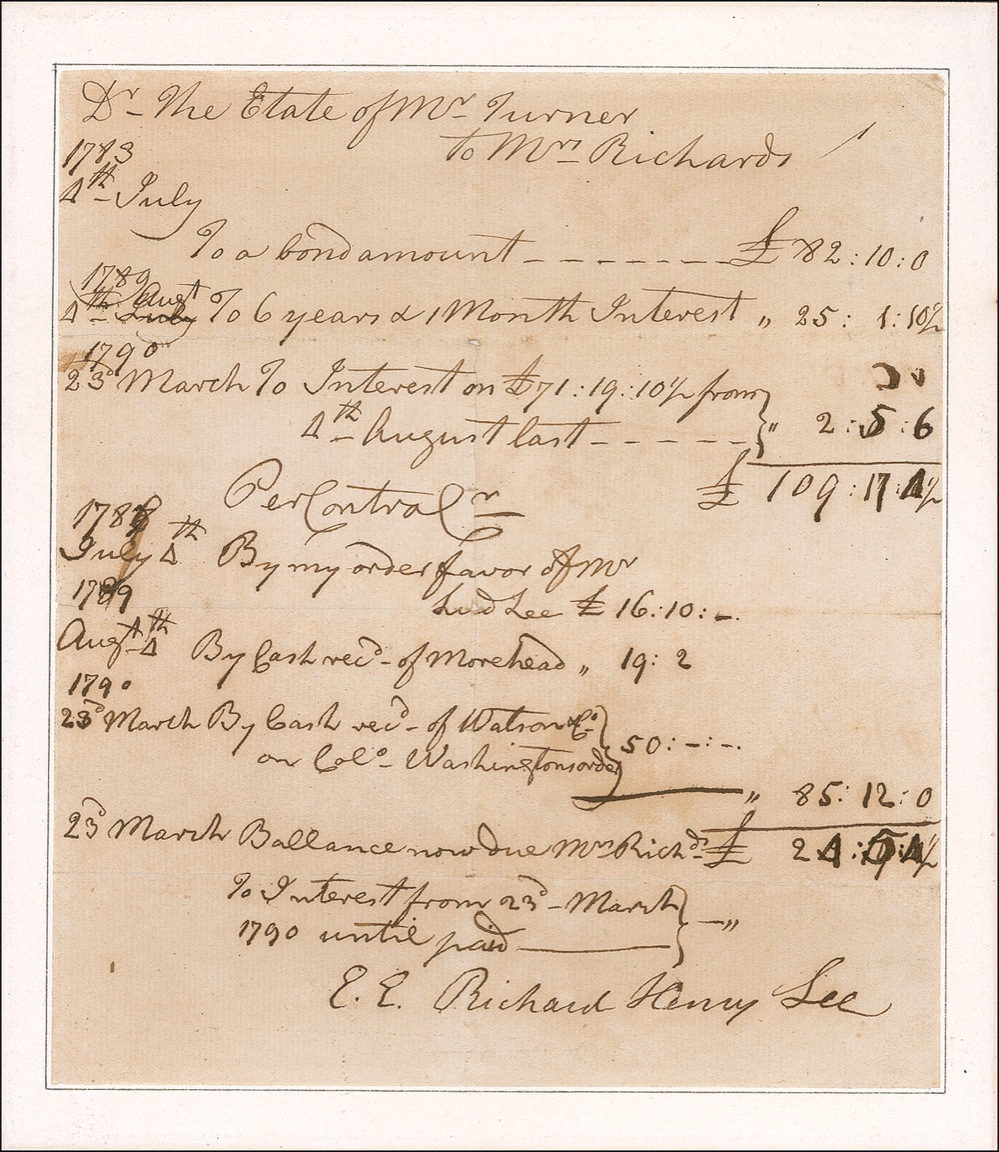 Dr The Etate of Mr Turner
to Mrs Richards
1783
4th July
To a bond amount - - - - - - - £ 82 : 10 : 0
1789
4th Augt To 6 years & 1 Month Interest " 25 : 1 : 10½
1790
23d March To Interest on £71 : 19 : 10½ from
4th August last - - - - - - " 2 : 5 : 6
£ 109 : 17 : 4½
Per Contra Cr
July 4th By my order favor of Mr
Lud Lee £ 16 : 10 : -.
1789
Augt 4th By Cash recd of Morehead " 19 : 2
1790
23d March By Cash recd of Watson & Co
on Colo Washingtons order 50 : - : -.
" 85 : 12 : 0
23d March Ballance now due Mrs Richds £
To Interest from 23d March
1790 until paid — "
E. E. Richard Henry Lee